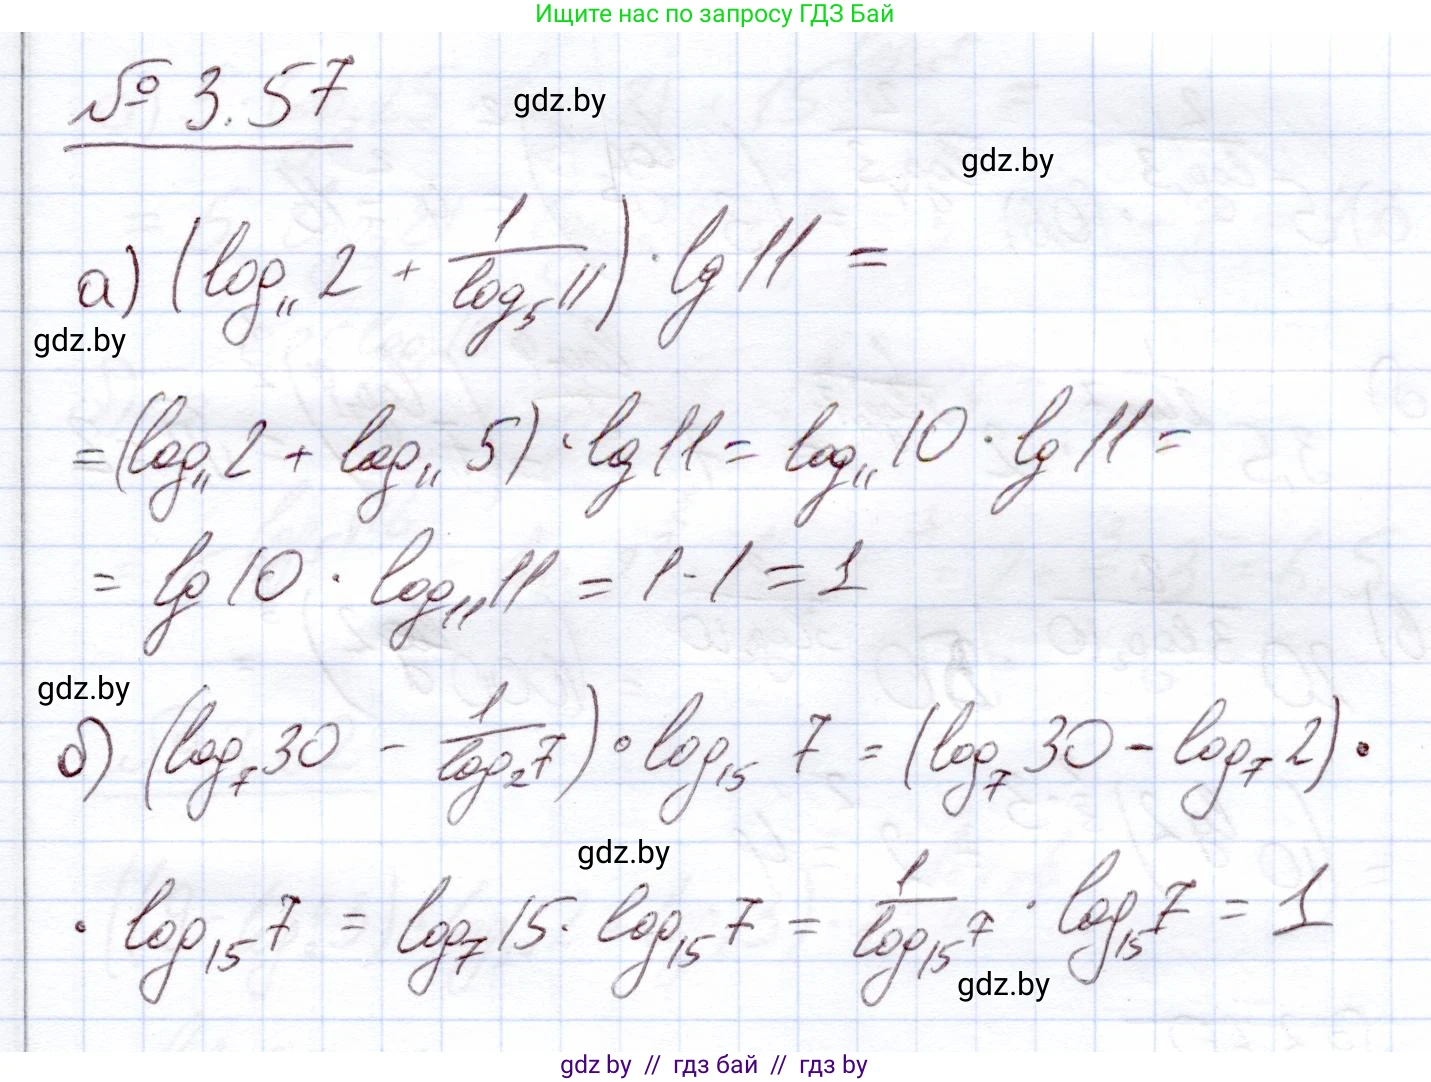 Ищите нас по запросу ГДЗ Бай
№ 3.57
gdz.by
gdz.by
а) (log₁₁ 2 + 1/log₅ 11) · lg 11 =
gdz.by
= (log₁₁ 2 + log₁₁ 5) · lg 11 = log₁₁ 10 · lg 11 =
= lg 10 · log₁₁ 11 = 1 · 1 = 1
gdz.by
б) (log₇ 30 - 1/log₂ 7) · log₁₅ 7 = (log₇ 30 - log₇ 2) ·
gdz.by
· log₁₅ 7 = log₇ 15 · log₁₅ 7 = 1/log₁₅ 7 · log₁₅ 7 = 1
gdz.by
gdz by // гдз бай // гдз by